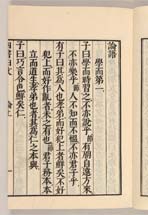 論語
學而第一
子曰學而時習之不亦說乎有朋自遠方來
不亦樂乎人不知而不慍不亦君子乎
有子曰其爲人也孝弟而好犯上者鮮矣不好
犯上而好作亂者未之有也君子務本本
立而道生孝弟也者其爲仁之本與
子曰巧言令色鮮矣仁